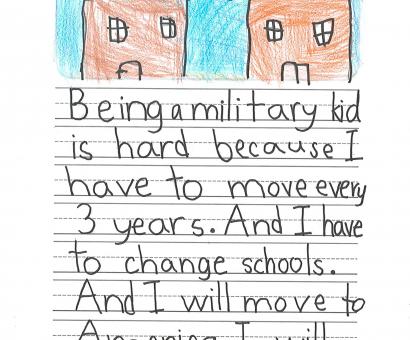 Being a military kid
is hard because I
have to move every
3 years. And I have
to change schools.
And I will move to
I will